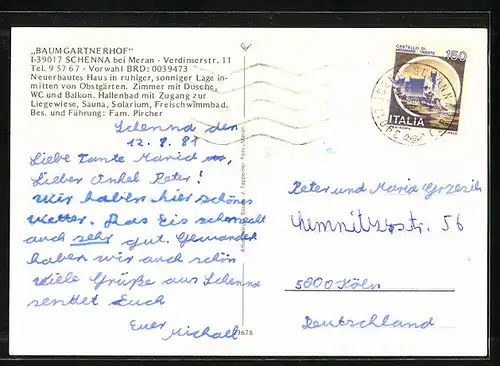 „BAUMGARTNERHOF"
I-39017 SCHENNA bei Meran · Verdinserstr. 11
Tel. 9 57 67 · Vorwahl BRD: 0039473
Neuerbautes Haus in ruhiger, sonniger Lage in-
mitten von Obstgärten. Zimmer mit Dusche,
WC und Balkon. Hallenbad mit Zugang zur
Liegewiese, Sauna, Solarium, Freischwimmbad.
Bes. und Führung: Fam. Pircher
Schenna den
12.8.81
Liebe Tante Maria,
Lieber Onkel Peter!
Wir haben hier schönes
Wetter. Das Eis schmeckt
auch sehr gut. Gewandert
haben wir auch schön
Viele Grüße aus Schenna
sendet Euch
Euer
Michael
23678
CASTELLO DI
MIRAMARE - TRIESTE
150
ITALIA
Peter und Maria
Chemnitzerstr. 56
5000 Köln
Deutschland